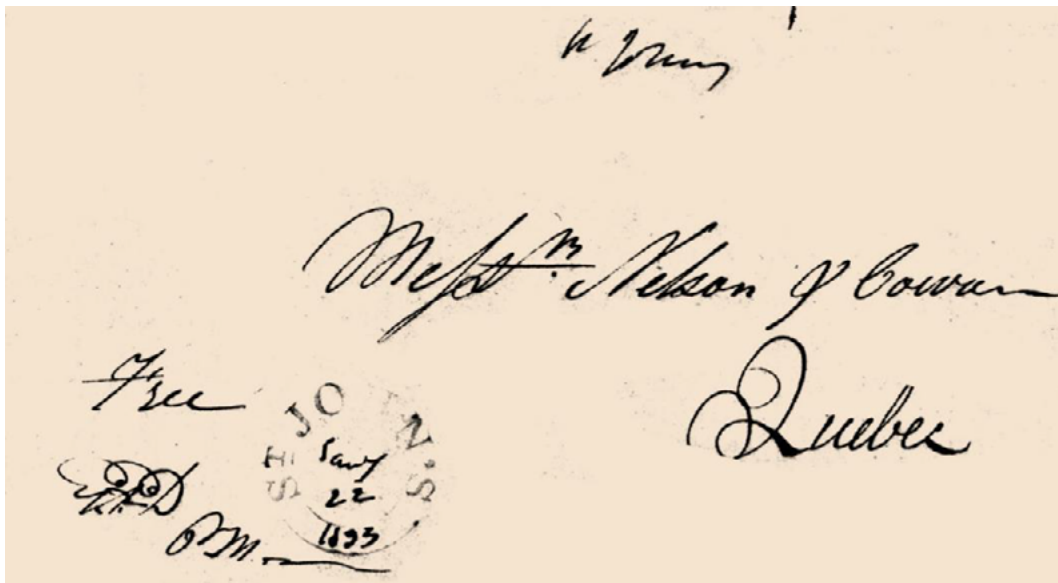 Messrs. Nelson & Cowan
Quebec
Free
ST JOHNS.
Jany
22
1833
P.M.